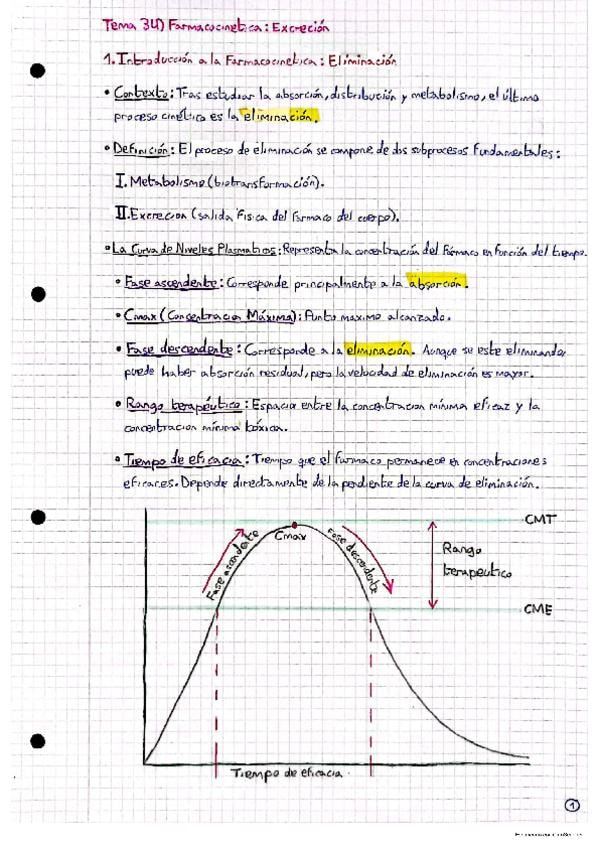 Tema 34) Farmacocinetica: Excreción
1. Introducción a la Farmacocinetica: Eliminación
• Contexto: Tras estudiar la absorción, distribución y metabolismo, el último
proceso cinético es la eliminación.
• Definición: El proceso de eliminación se compone de dos subprocesos fundamentales:
I. Metabolismo (biotransformación).
II. Excrecion (salida física del farmaco del cuerpo).
• La Curva de Niveles Plasmaticos: Representa la concentración del fármaco en función del tiempo.
• Fase ascendente: Corresponde principalmente a la absorción.
• Cmax (Concentracion Máxima): Punto maximo alcanzado.
• Fase descendente: Corresponde a la eliminación. Aunque se este eliminando,
puede haber absorción residual, pero la velocidad de eliminación es mayor.
• Rango terapéutico: Espacio entre la concentracion mínima eficaz y la
concentracion mínima tóxica.
• Tiempo de eficacia: Tiempo que el farmaco permanece en concentraciones
eficaces. Depende directamente de la pendiente de la curva de eliminación.
CMT
Cmax
Fase ascendente
Fase descendente
Rango
terapeutico
CME
Tiempo de eficacia
1